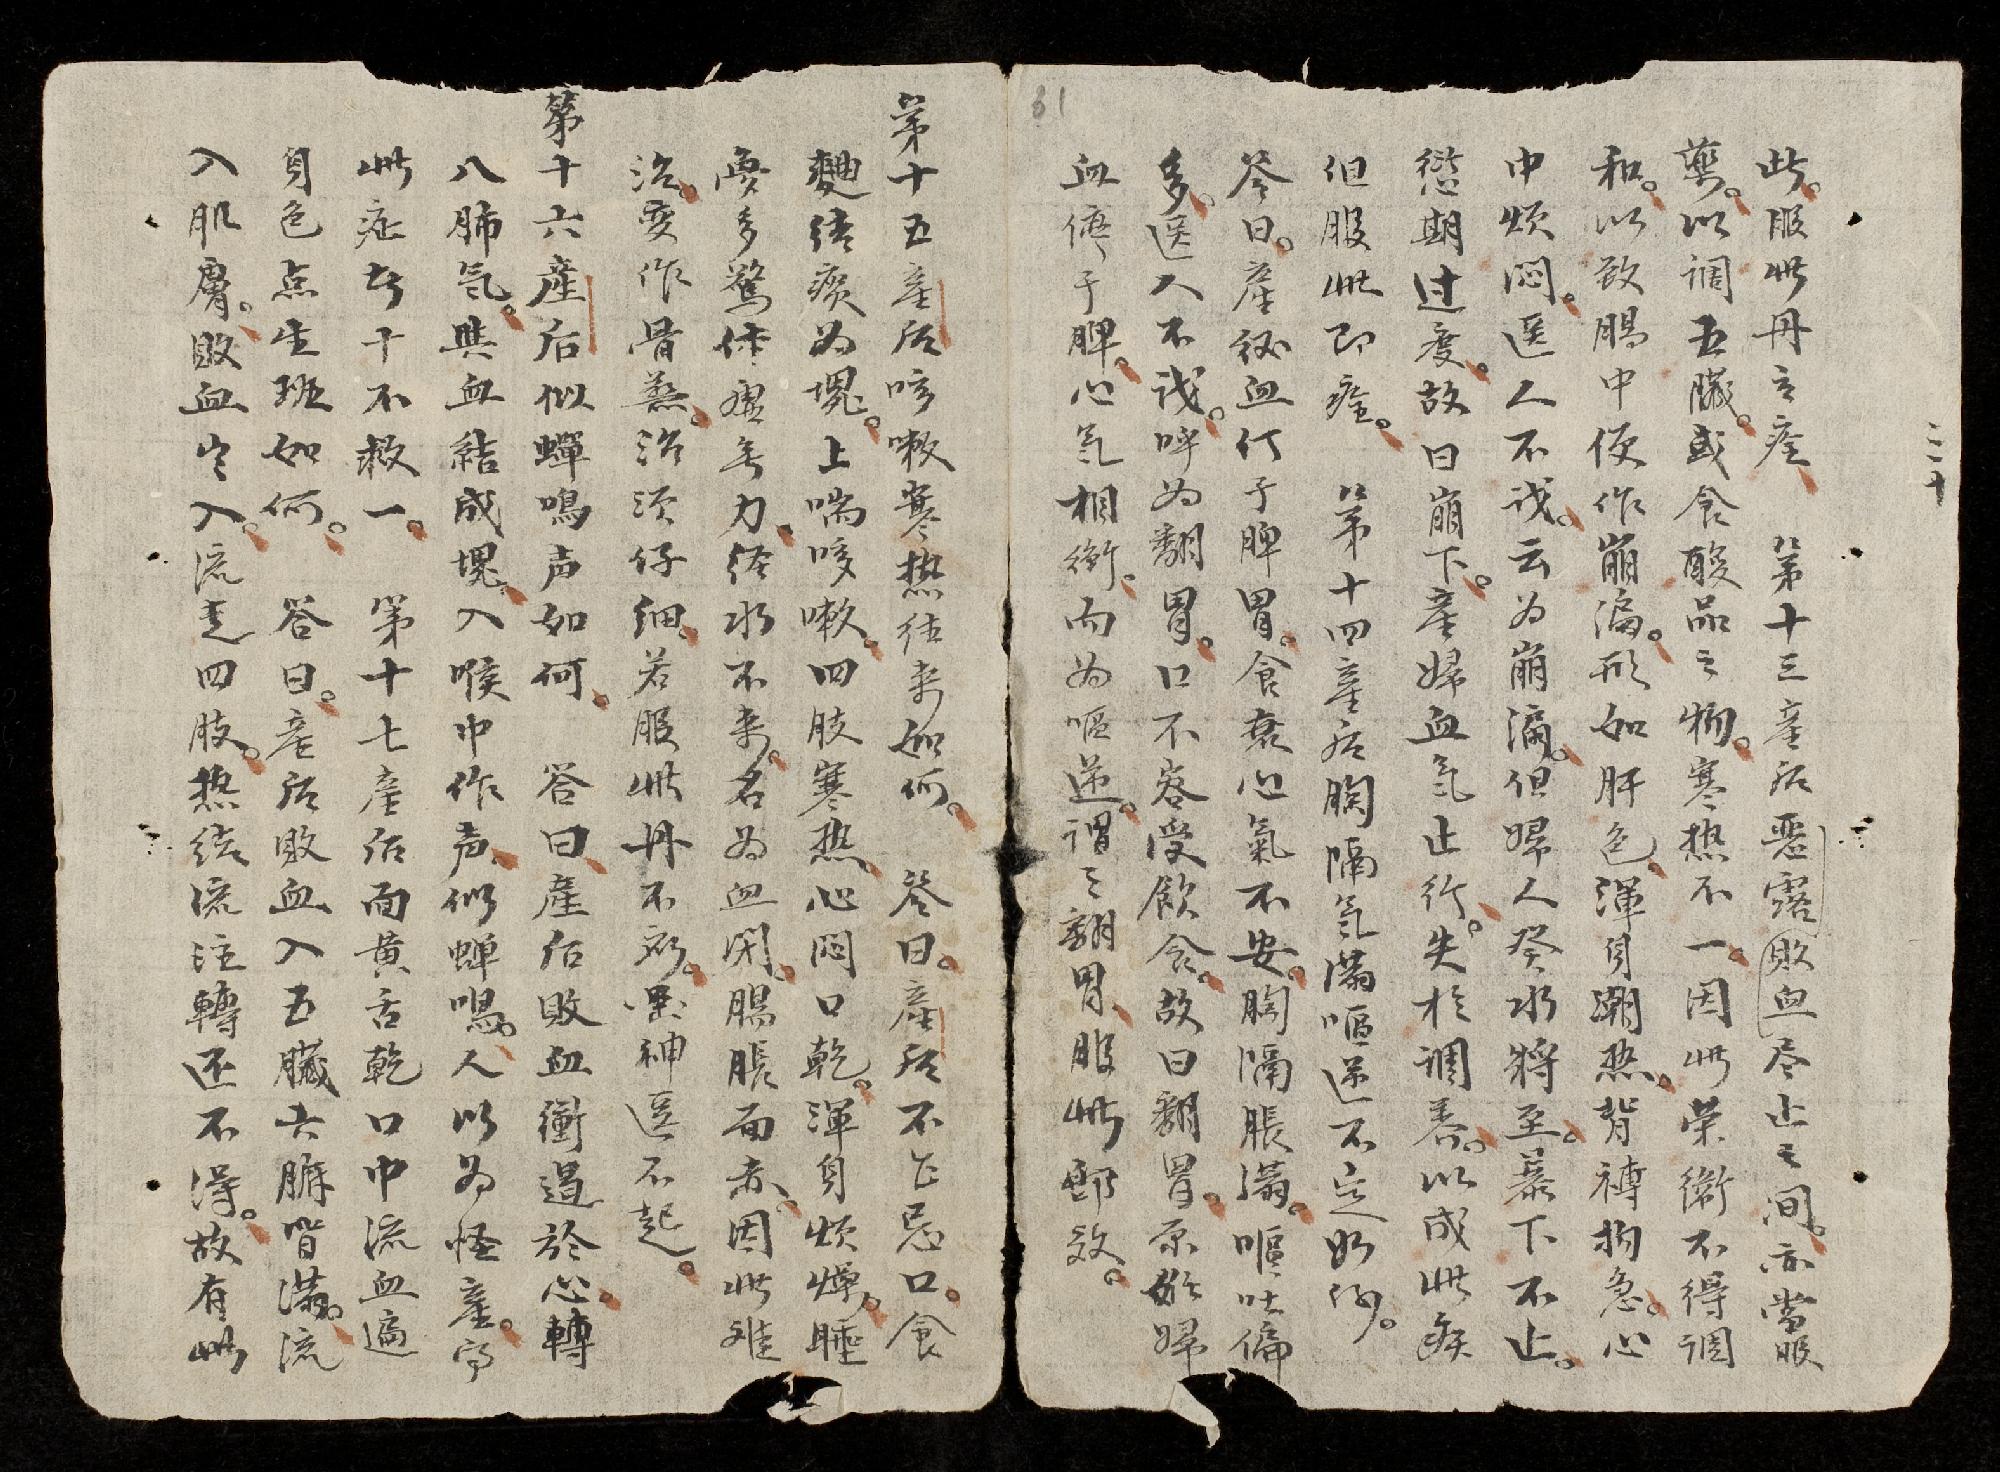 二十
此。服此丹立痊　第十三産后惡露敗血尽止之间。亦當服
藥。以调五臟。或食酸品之物。寒热不一。因此荣衛不得调
和。以致腸中便作崩漏。形如肝色。渾身潮热。背膊拘急。心
中烦闷。医人不识。云为崩漏。但婦人癸水將至。暴下不止。
愆期过度。故曰崩下。産婦血气止行。失於调养。以成此疾
但服此即痊。　第十四産后胸隔气滿嘔逆不定如何。
答曰。産後血仃于脾胃。食衰心氣不安。胸隔脹滿。嘔吐偏
多。医人不识。呼为翻胃。口不容受飲食。故曰翻胃。原於婦
血停于脾。心气相衝。而为嘔逆。謂之翻胃。服此郎效。
61
第十五産后咳嗽寒热往来如何。　答曰。産后不仺忌口。食
麵结痰为塊。上喘咳嗽。四肢寒热。心闷口乾。渾身烦燥。睡
夢多驚。体虚無力。经水不来。名为血闭。腸脹面赤。因此难
治。变作骨蒸。治须仔细。若服此丹不効。黑神医不起。
第十六産后似蟬鳴声如何。　答曰。産后敗血衝過於心。轉
入肺气。與血結成塊。入喉中作声。似蟬鳴。人以为怪産。
此症百千不救一。　第十七産后面黄舌乾口中流血遍
身色点生班如何。　答曰。産后敗血入五臟六腑皆滿。流
入肌膚。敗血出入。流走四肢。热结流注轉还不得。故有此